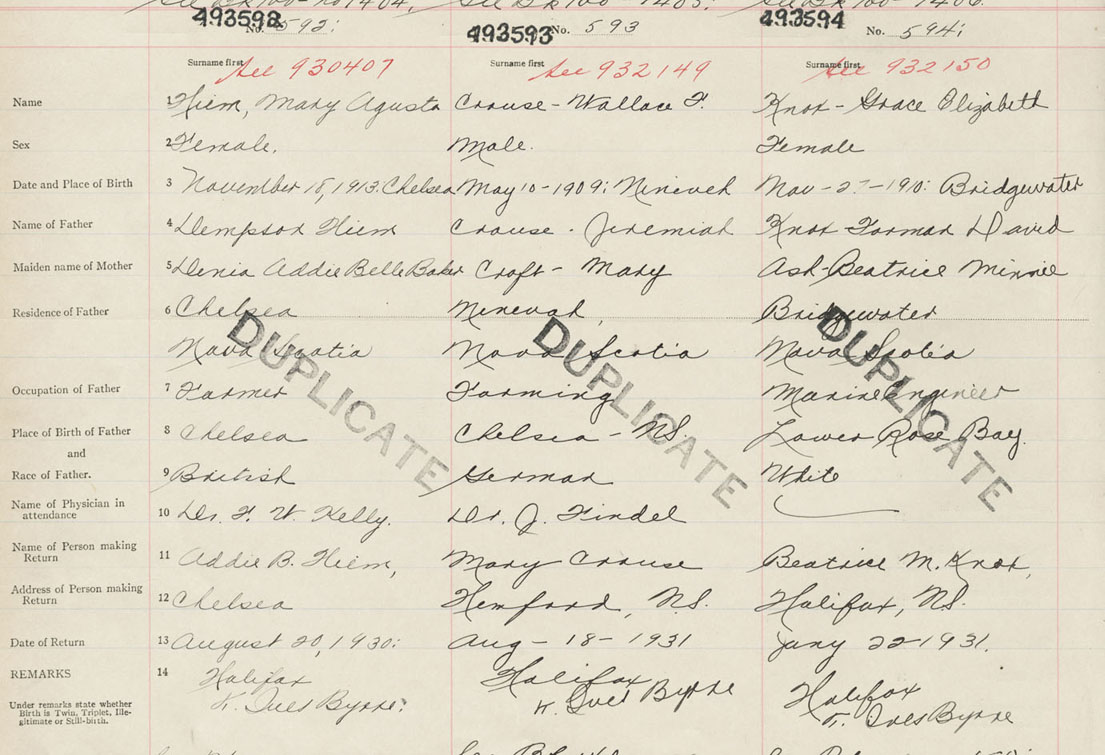 493592 493593 493594
No. 592; No. 593 No. 594;
Surname first Surname first Surname first
See 930407 See 932149 See 932150
Name 1 Hiem, Mary Agusta Crouse - Wallace F. Knox - Grace Elizabeth
Sex 2 Female. Male. Female
Date and Place of Birth 3 November 15, 1913; Chelsea May 10 - 1909; Nineveh Nov - 27 - 1910: Bridgewater
Name of Father 4 Dempson Hiem Crouse - Jeremiah Knox Forman David
Maiden name of Mother 5 Denia Addie Belle Baker Croft - Mary Ash - Beatrice Minnie
Residence of Father 6 Chelsea Ninevah, Bridgewater
Nova Scotia Nova Scotia Nova Scotia
DUPLICATE DUPLICATE DUPLICATE
Occupation of Father 7 Farmer Farming Marine Engineer
Place of Birth of Father 8 Chelsea Chelsea - N.S. Lower Rose Bay.
and
Race of Father. 9 British German White
Name of Physician in
attendance 10 Dr. F. W. Kelly. Dr. J. Findel
Name of Person making
Return 11 Addie B. Hiem, Mary Crouse Beatrice M. Knox,
Address of Person making
Return 12 Chelsea Hemford, N.S. Halifax, N.S.
Date of Return 13 August 20, 1930: Aug - 18 - 1931 Jany 22 - 1931.
REMARKS 14 Halifax Halifax Halifax
Under remarks state whether
Birth is Twin, Triplet, Ille-
gitimate or Still-birth.
Ives Byrne: Ives Byrne Ives Byrne